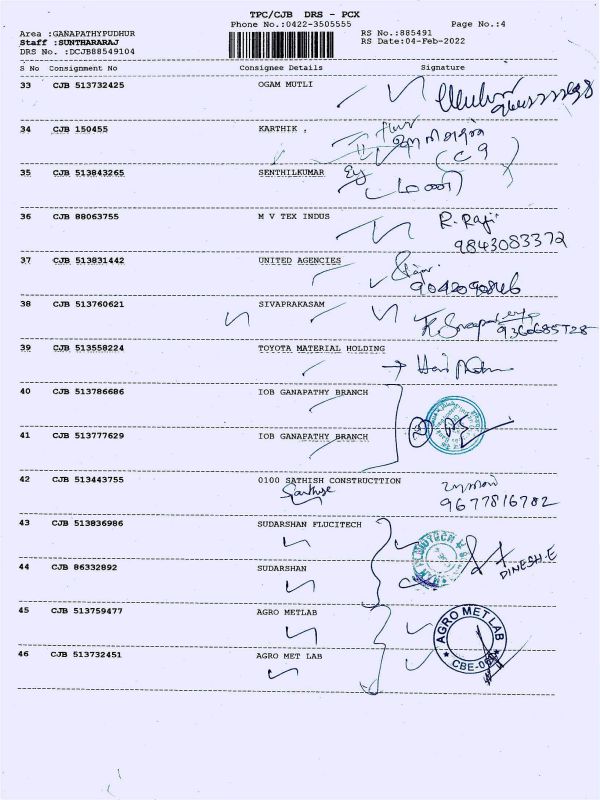 TPC/CJB DRS - PCX
Phone No.:0422-3505555 Page No.:4
Area :GANAPATHYPUDHUR RS No.:885491
Staff :SUNTHARARAJ RS Date:04-Feb-2022
DRS No. :DCJB88549104
S No Consignment No Consignee Details Signature
33 CJB 513732425 OGAM MUTLI
34 CJB 150455 KARTHIK .
35 CJB 513843265 SENTHILKUMAR
36 CJB 88063755 M V TEX INDUS R. Raji
9843083372
37 CJB 513831442 UNITED AGENCIES
9042090846
38 CJB 513760621 SIVAPRAKASAM
39 CJB 513558224 TOYOTA MATERIAL HOLDING
40 CJB 513786686 IOB GANAPATHY BRANCH
41 CJB 513777629 IOB GANAPATHY BRANCH
42 CJB 513443755 0100 SATHISH CONSTRUCTTION
9677816702
43 CJB 513836986 SUDARSHAN FLUCITECH
44 CJB 86332892 SUDARSHAN DINESH.E
45 CJB 513759477 AGRO METLAB
AGRO MET LAB
46 CJB 513732451 AGRO MET LAB